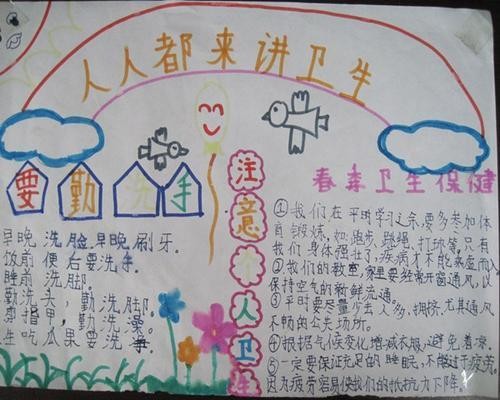 人人都来讲卫生
要勤洗手
早晚洗脸早晚刷牙.
饭前便后要洗手.
睡前洗脚.
勤洗头,勤洗脚.
剪指甲,勤洗澡.
生吃瓜果要洗净
注意个人卫生
春季卫生保健
①我们在平时学习之余,要多参加体
育锻炼,如跑步、跳绳、打球等,只有
我们身体强壮了,疾病才不能乘虚而入
②我们的教室,家里要经常开窗通风,以
保持空气的新鲜流通.
③平时要尽量少去人多,拥挤,尤其通风
不畅的公共场所.
④根据气候变化增减衣服,避免着凉.
⑤一定要保证充足的睡眠,不能过于疲劳.
因为疲劳容易使我们的抵抗力下降.